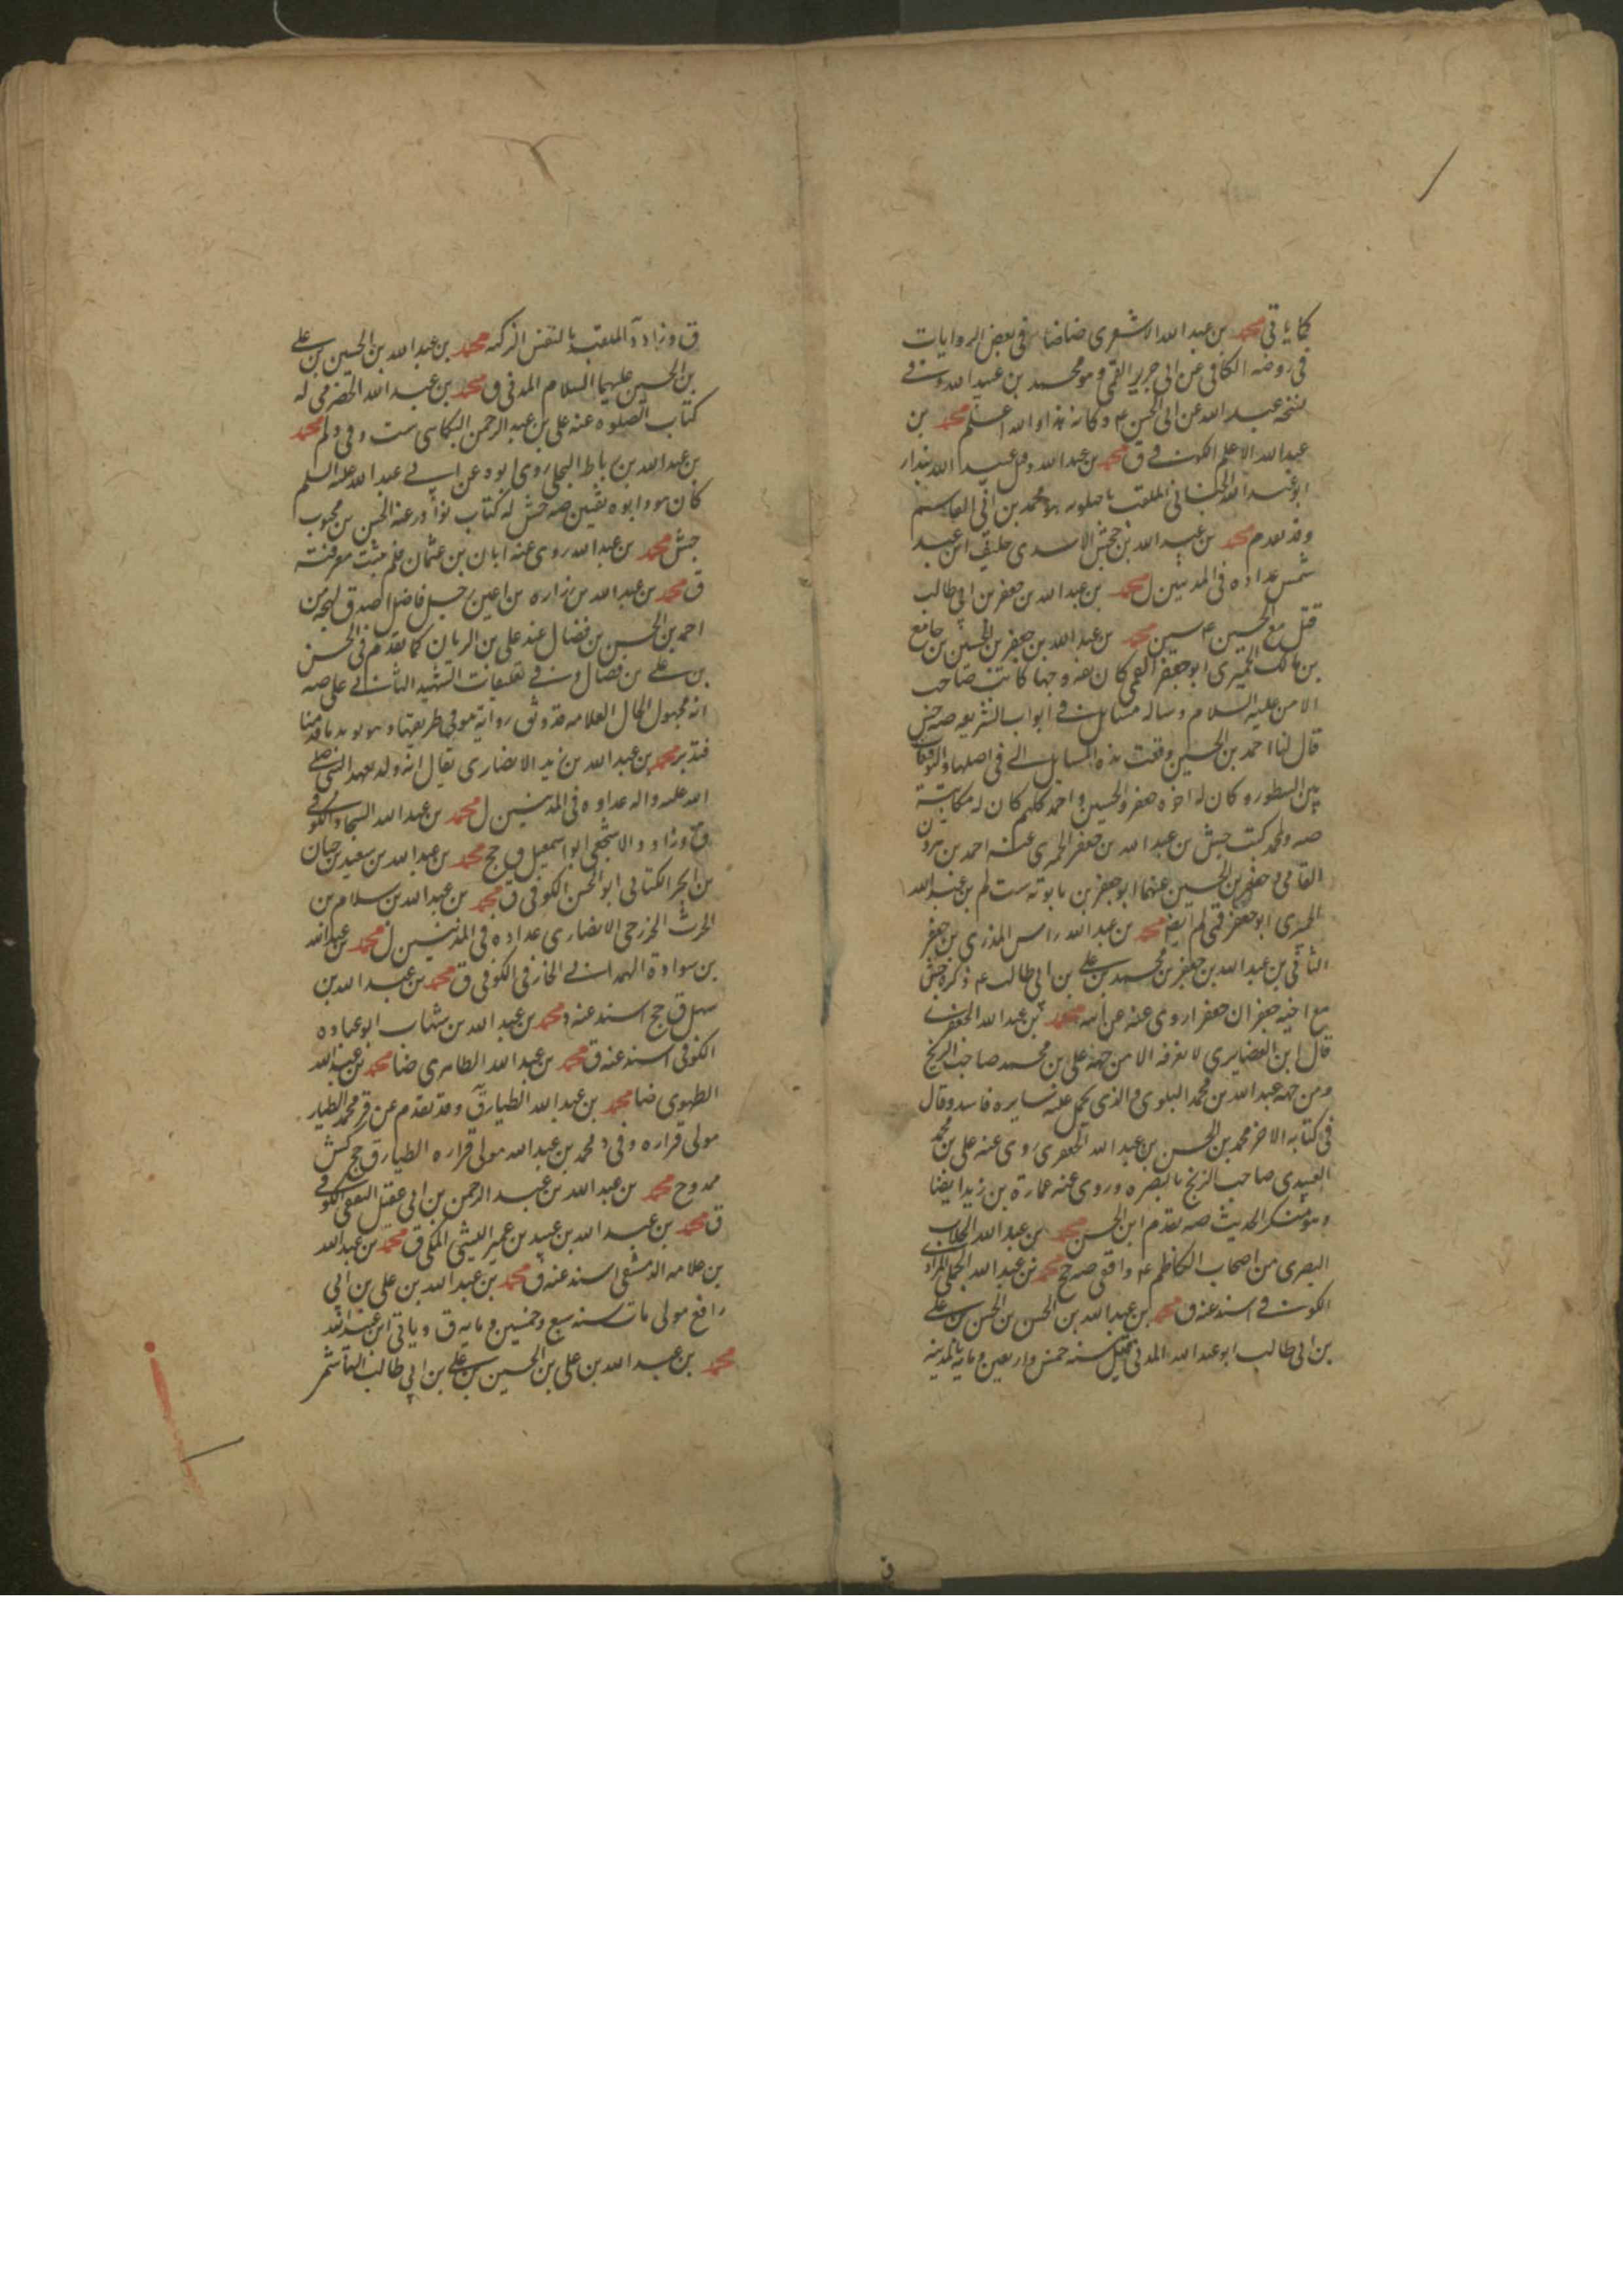 كما ياتي محمد بن عبد الله الاشعري ضا في بعض الروايات
في روضة الكافي عن ابي جرير القمي وهو محمد بن عبيد الله وفي
نسخة عبد الله عن ابي الحسن ع وكانه هذا والله اعلم محمد بن
عبد الله الاعلم الكوفي ق محمد بن عبد الله وقيل عبيد الله بندار
ابو عبد الله الجنابي الملقب ماجيلويه محمد بن ابي القاسم
وقد تقدم محمد بن عبد الله بن جحش الاسدي حليف ابن عبد
شمس عداده في المدنيين ل محمد بن عبد الله بن جعفر بن ابي طالب
قتل مع الحسين ع سين محمد بن عبد الله بن جعفر بن الحسين بن جامع
بن مالك الحميري ابو جعفر القمي كان ثقة وجها كاتب صاحب
الامر عليه السلام وساله مسايل في ابواب الشريعة صه جش
قال لنا احمد بن الحسين وقعت هذه المسايل الي في اصلها والتوقيعات
بين السطور وكان له اخوة جعفر والحسين واحمد كلهم كان له مكاتبة
صه ولمحمد كتب جش بن عبد الله بن جعفر الحميري عنه احمد بن هرون
القامي وجعفر بن الحسين عنهما ابو جعفر بن بابويه ست لم بن عبد الله
الحميري ابو جعفر قي لم ايضا محمد بن عبد الله راس المذري بن جعفر
الثاني بن عبد الله بن جعفر بن محمد بن علي بن ابي طالب ع ذكره جش
مع اخيه جعفر ان جعفرا روى عنه عن ابيه محمد بن عبد الله الجعفري
قال ابن الغضايري لا نعرفه الا من جهة علي بن محمد صاحب الزنج
ومن جهة عبد الله بن محمد البلوي والذي يحمل عليه سايره فاسد وقال
في كتابه الاخر محمد بن الحسن بن عبد الله الجعفري روى عنه علي بن محمد
العبيدي صاحب الزنج بالبصرة وروى عنه عمارة بن زيد ايضا
وهو منكر الحديث صه تقدم ابن الحسن محمد بن عبد الله الجلاب
البصري من اصحاب الكاظم ع واقفي صه جح محمد بن عبد الله الجملي المرادي
الكوفي اسند عنه ق محمد بن عبد الله بن الحسن بن الحسن بن علي
بن ابي طالب ابو عبد الله المدني قتل سنة خمس واربعين ومايه بالمدينة
ق وزاد د الملقب بالنفس الزكية محمد بن عبد الله بن الحسين بن علي
بن الحسين عليهما السلام المدني ق محمد بن عبد الله الحضرمي له
كتاب الصلوة عنه علي بن عبد الرحمن البكائي ست وفي د لم محمد
بن عبد الله بن رباط البجلي روى ابوه عن ابي عبد الله عليه السلم
كان هو وابوه ثقتين صه جش له كتاب نوادر عنه الحسن بن محبوب
جش محمد بن عبد الله روى عنه ابان بن عثمان فلم يثبت معرفته
ق محمد بن عبد الله بن زراره بن اعين رجل فاضل اصدق لهجة من
احمد بن الحسن بن فضال عند علي بن الريان كما تقدم في الحسن
بن علي بن فضال وفي تعليقات الشهيد الثاني على صه
انه مجهول الحال العلامه قد وثق رواية هو في طريقها وهو يويد ما قدمنا
فتدبر محمد بن عبد الله بن زيد الانصاري يقال انه ولد بعهد النبي صلى
الله عليه واله عداده في المدنيين ل محمد بن عبد الله السجاد الكوفي
ق وزاد د الاشجعي ابو اسمعيل ق جح محمد بن عبد الله بن سعيد بن حيان
بن ابجر الكناني ابو الحسن الكوفي ق محمد بن عبد الله بن سلام بن
الحرث الخزرجي الانصاري عداده في المدنيين ل محمد بن عبد الله
بن سوادة الهمداني الخارفي الكوفي ق محمد بن عبد الله بن
سهل ق جح اسند عنه د محمد بن عبد الله بن شهاب ابو عباده
الكوفي اسند عنه ق محمد بن عبد الله الطاهري ضا محمد بن عبد الله
الطهوي ضا محمد بن عبد الله الطيار ق وقد تقدم عن قر محمد الطيار
مولى فزاره وفي د محمد بن عبد الله مولى فزاره الطيار ق جح كش
ممدوح محمد بن عبد الله بن عبد الرحمن بن ابي عقيل الثقفي الكوفي
ق محمد بن عبد الله بن عبيد بن عمير الليثي المكي ق محمد بن عبد الله
بن علامه الدمشقي اسند عنه ق محمد بن عبد الله بن علي بن ابي
رافع مولى مات سنه سبع وخمسين ومايه ق وياتي ابن عبد الله
محمد بن عبد الله بن علي بن الحسين بن علي بن ابي طالب الهاشمي